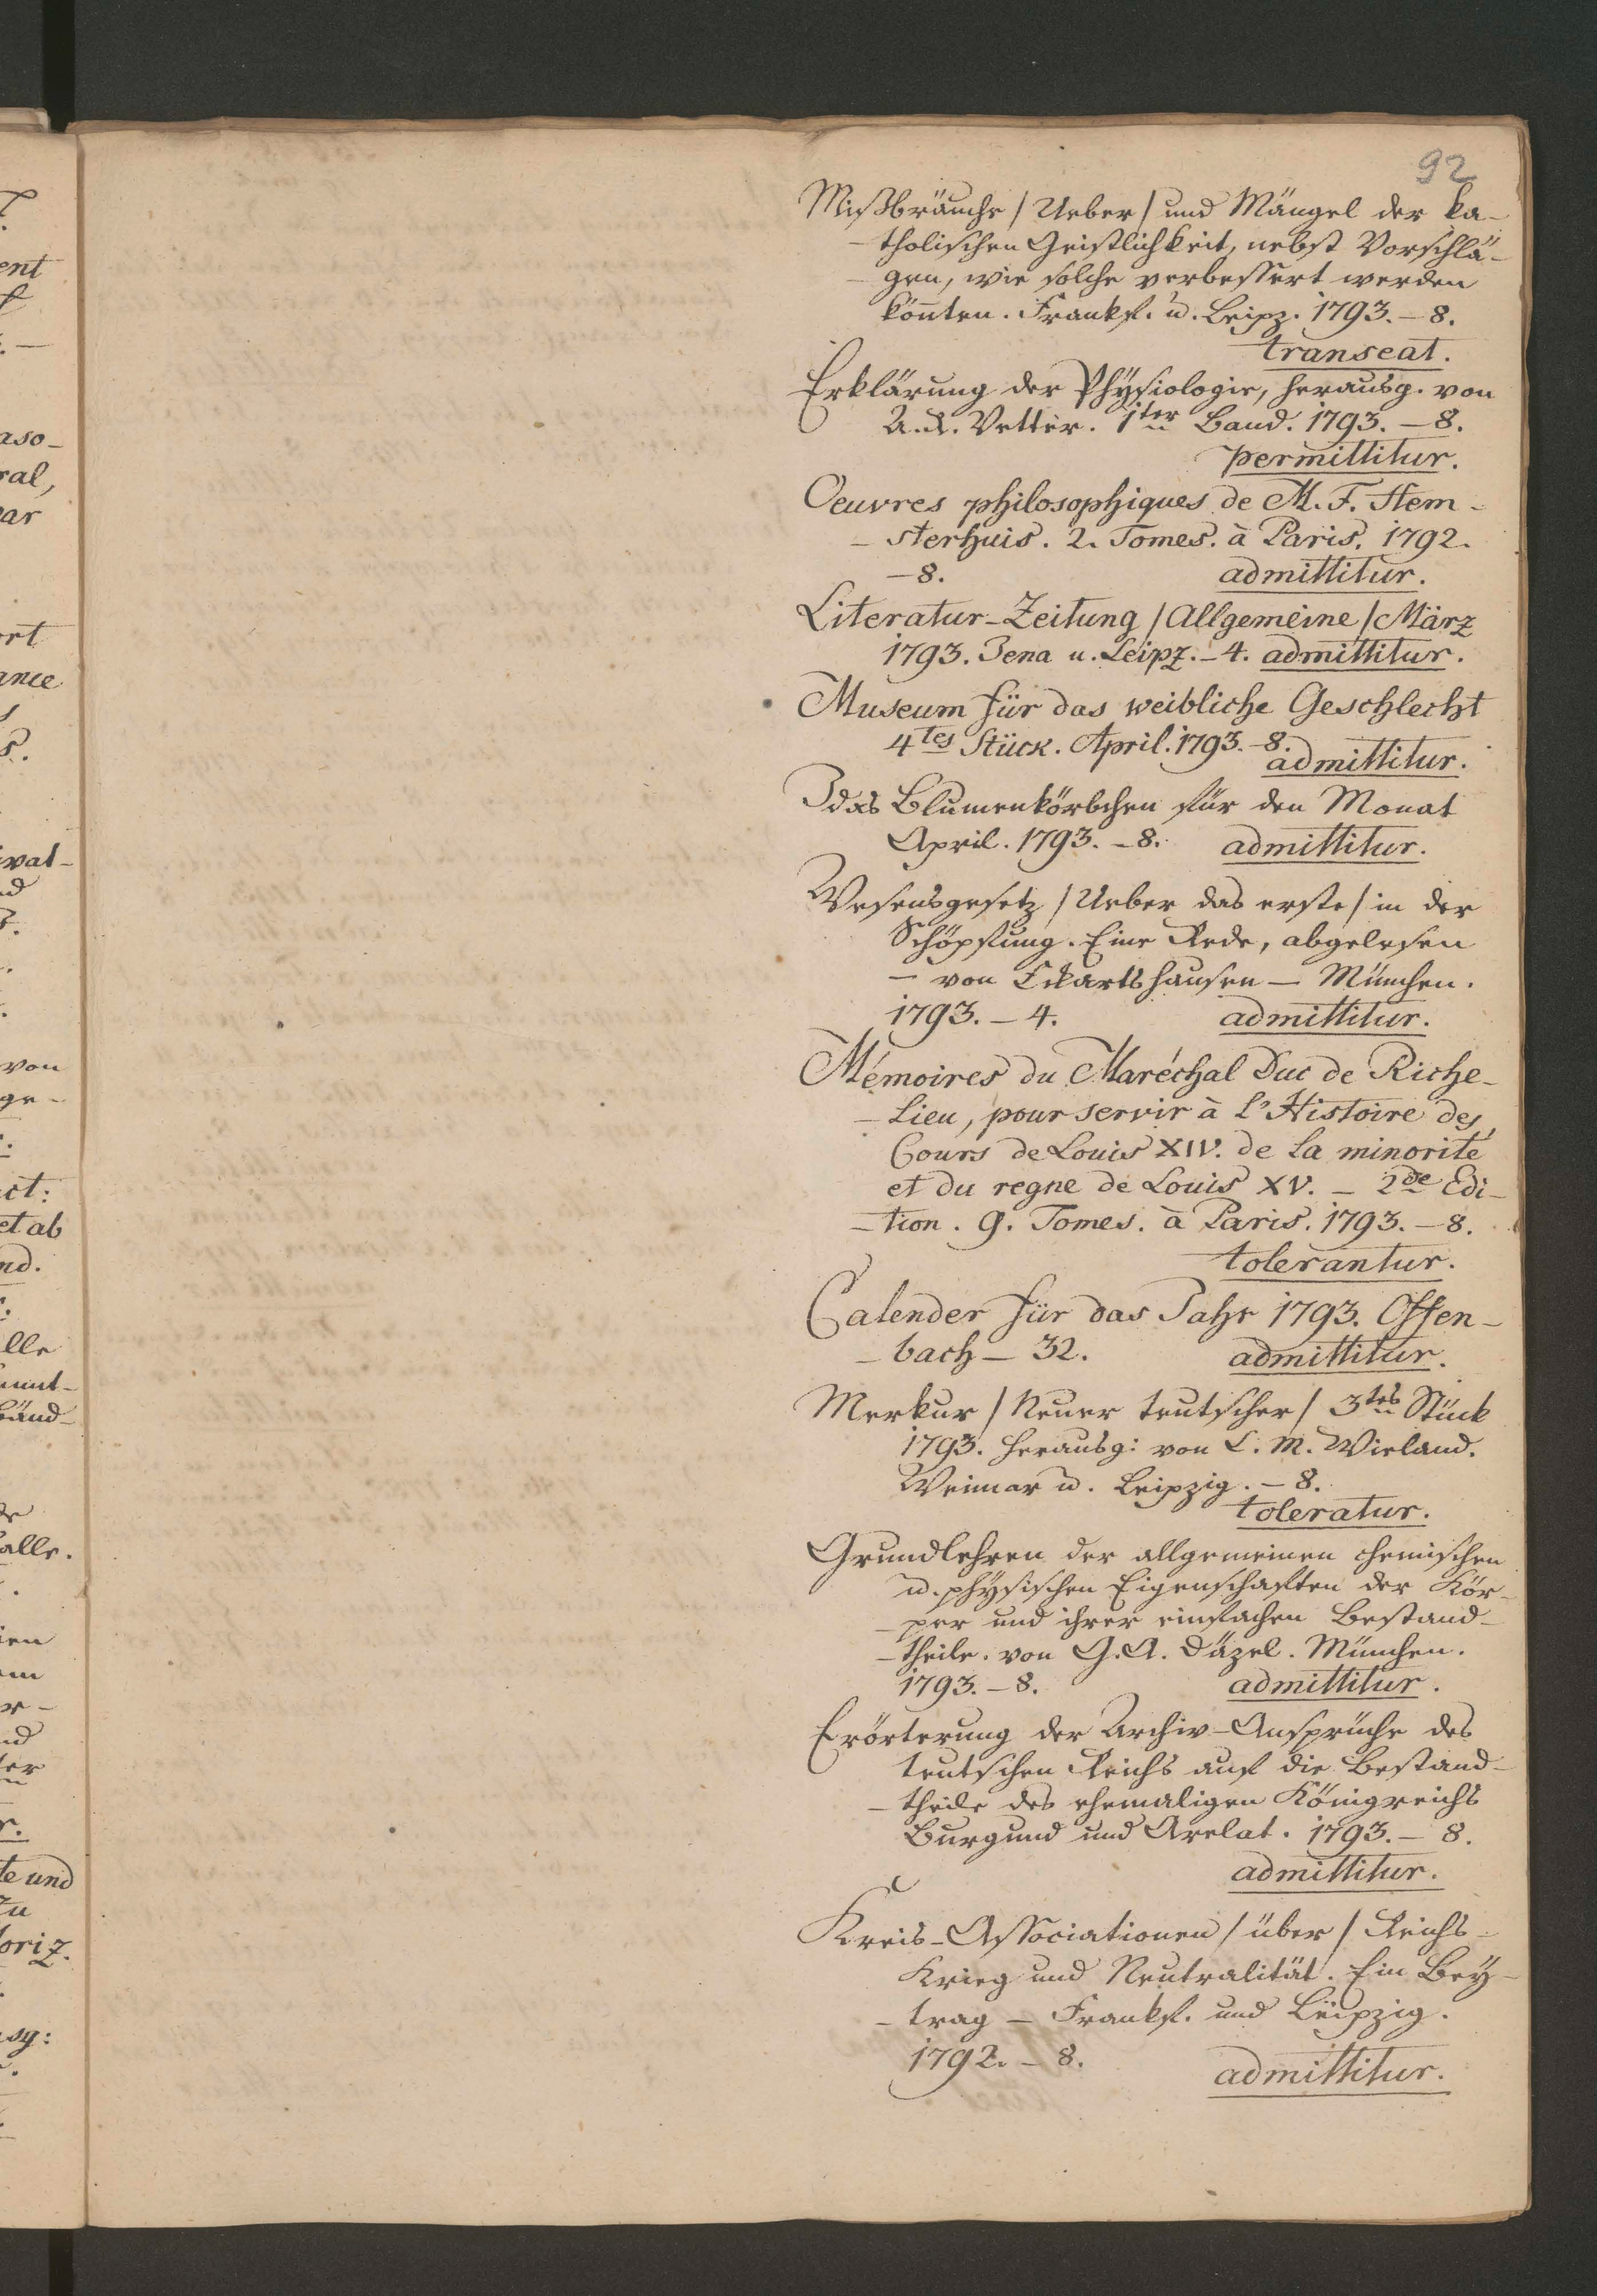 92
Mißbräuche / Ueber / und Mängel der ka-
tholischen Geistlichkeit, nebst Vorschlä-
gen, wie solche verbessert werden
könnten. Frankf. u. Leipz. 1793. – 8.
transeat.
Erklärung der Physiologie, herausg. von
A. R. Vetter. 1ter Band. 1793. – 8.
permittitur.
Oeuvres philosophiques de M. F. Hem-
- sterhuis. 2. Tomes. à Paris. 1792.
– 8. admittitur.
Literatur-Zeitung / Allgemeine / März
1793. Jena u. Leipz. – 4. admittitur.
Museum für das weibliche Geschlecht
4tes Stück. April. 1793. – 8.
admittitur.
Idas Blumenkörbchen für den Monat
April. 1793. – 8. admittitur.
Wesensgesetz / Ueber das erste / in der
Schöpfung. Eine Rede, abgelesen
– von Eckartshausen – München.
1793. – 4. admittitur.
Mémoires du Maréchal Duc de Riche-
- lieu, pour servir à l'Histoire des
Cours de Louis XIV. de la minorité
et du regne de Louis XV. – 2de Edi-
- tion. 9. Tomes. à Paris. 1793. – 8.
tolerantur.
Calender für das Jahr 1793. Offen-
- bach – 32. admittitur.
Merkur / Neuer teutscher / 3tes Stück
1793. herausg: von C. M. Wieland.
Weimar u. Leipzig. – 8.
toleratur.
Grundlehren der allgemeinen chemischen
u. physischen Eigenschaften der Kör-
- per und ihrer einfachen Bestand-
- theile. von G. A. Däzel. München.
1793. – 8. admittitur.
Erörterung der Archiv-Ansprüche des
teutschen Reichs auf die Bestand-
- theile des ehemaligen Königreichs
Burgund und Arelat. 1793. – 8.
admittitur.
Kreis-Associationen / über / Reichs-
Krieg und Neutralität. Ein Bey-
- trag – Frankf. und Leipzig.
1792. – 8.
admittitur.